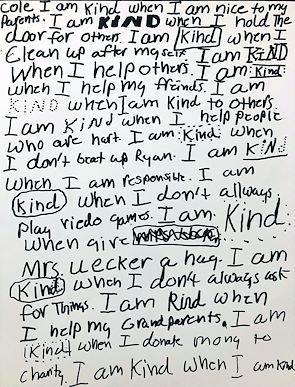 Cole I am kind when I am nice to my
Parents. I am KIND when I hold the
door for others. I am Kind when I
Clean up after my self. I am KIND
when I help others. I am Kind
when I help my friends. I am
KIND when I am kind to others.
I am Kind when I help people
who are hurt. I am Kind when
I don't beat up Ryan. I am KIND
when I am responsible. I am
Kind when I don't allways
play viedo games. I am Kind
when give
Mrs. uecker a hug. I am
Kind when I don't always ask
for Things. I am Kind when
I help my Grandparents. I am
Kind when I donate mony to
charity. I am Kind when I am kind